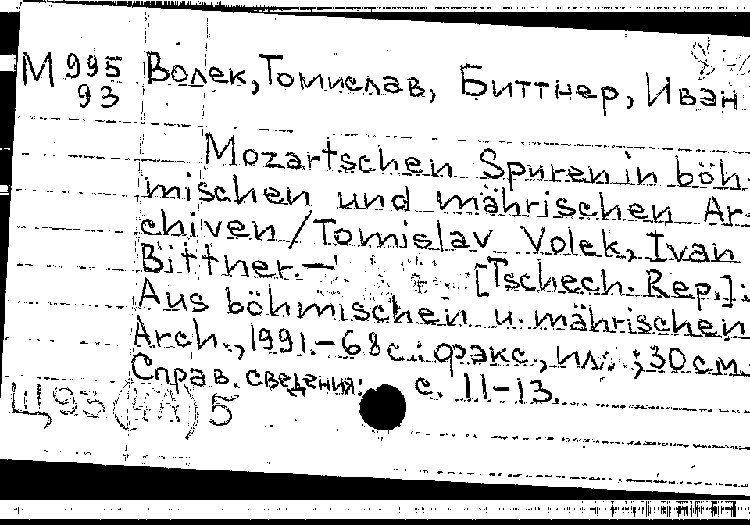 М 995 Волек, Томислав, Биттнер, Иван
93
Mozartschen Spuren in böh-
mischen und mährischen Ar-
chiven / Tomislav Volek, Ivan
Bittner. — [Tschech. Rep.]:
Aus böhmischen u. mährischen
Arch., 1991. – 68 с.: факс., ил.; 30 см.
Справ. сведения: с. 11–13.
Щ93( )5